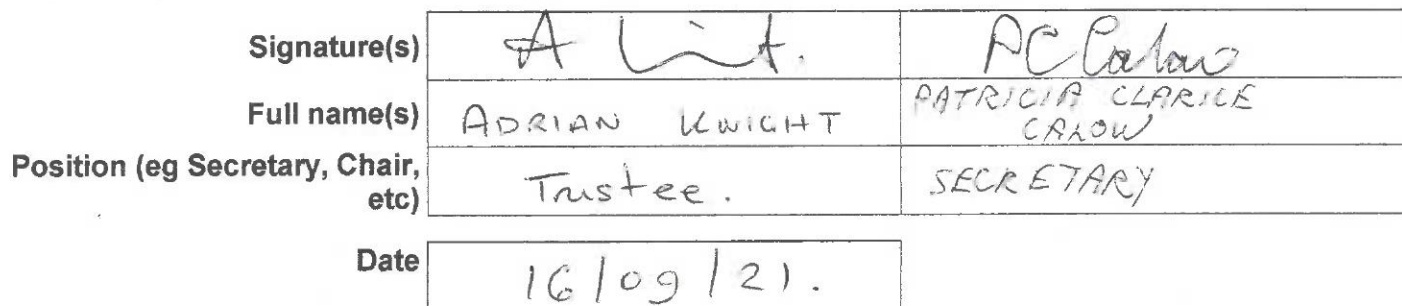 Signature(s) A PC Calow
Full name(s) ADRIAN KNIGHT PATRICIA CLARICE
CALOW
Position (eg Secretary, Chair,
etc) Trustee. SECRETARY
Date 16/09/21.